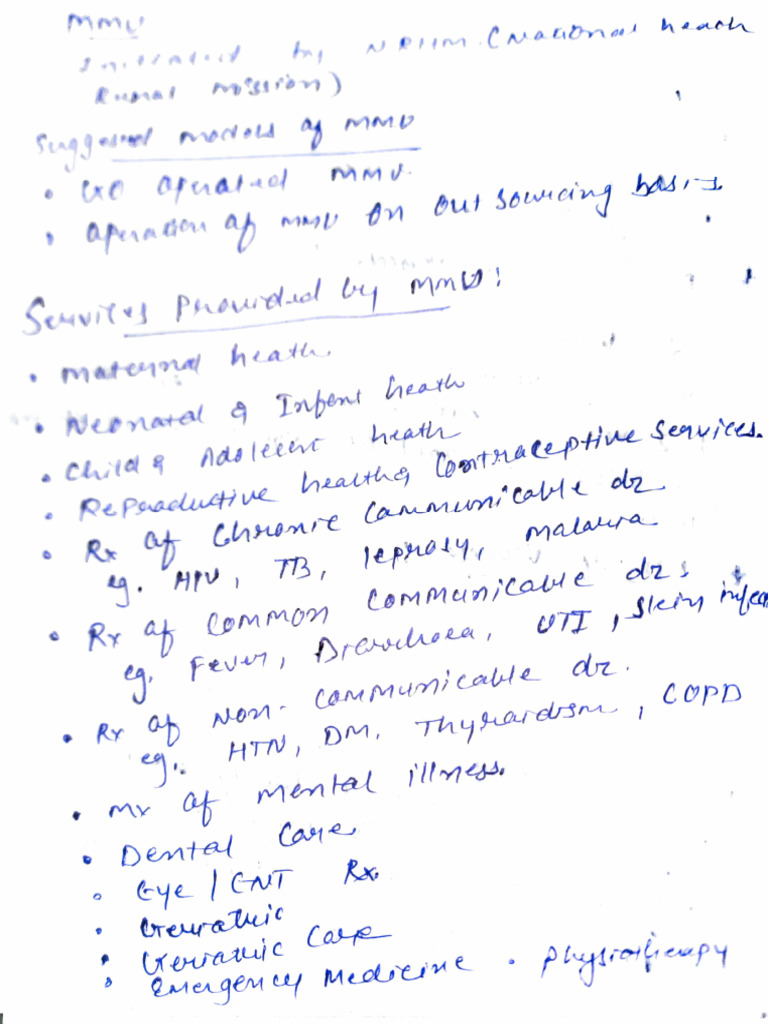 MMU
Initiated by NRHM (National heath
Rural mission)
Suggested models of MMU
• GO operated MMU.
• Operation of MMU on out sourcing basis.
Services Provided by MMU:
• Maternal heath.
• Neonatal & Infant heath
• Child & Adolecent heath
• Reproductive health & Contraceptive services.
• Rx of Chronic Communicable dz
eg. HIV, TB, leprosy, malaria
• Rx of Common Communicable dz.
eg. Fever, Diarrhoea, UTI, skin infec
• Rx of Non-Communicable dz.
eg. HTN, DM, Thyroidism, COPD
• Mx of mental illness.
• Dental Care.
• Eye / ENT Rx.
• Geriatric
• Geriatric Care
• Emergency Medicine • Physiotherapy